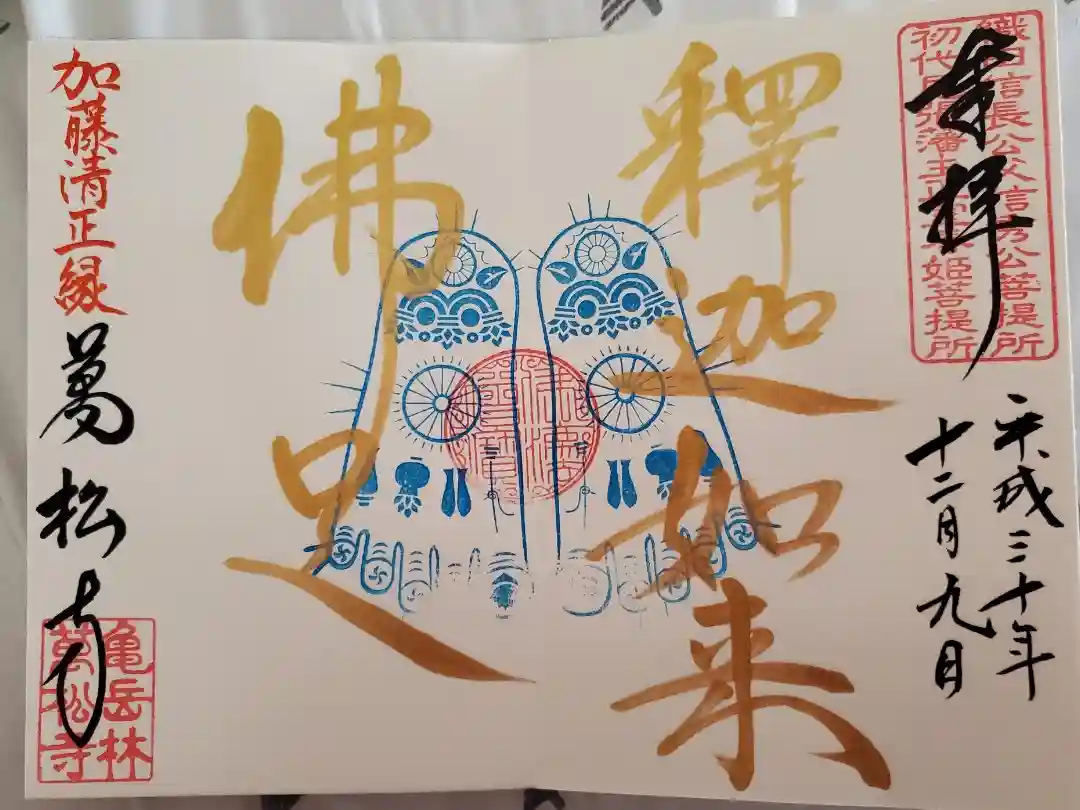 奉拝
織田信長公父信秀公菩提所
平成三十年
十二月九日
釋迦如来
佛足
加藤清正縁
萬松寺
亀岳林
萬松寺